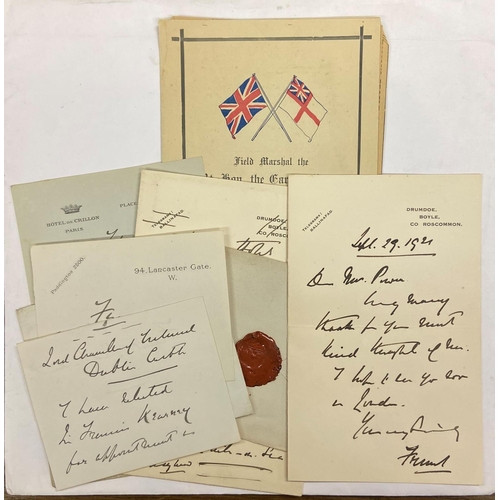 Field Marshal the
Rt. Hon. the Ear
HOTEL DE CRILLON
PARIS
PLAC
TELEGRAMS:
BALLINAFAD
DRUMDOE,
BOYLE,
CO ROSCOMMON.
Paddington 2500.
94, Lancaster Gate.
W.
Lord Chancellor of Ireland
Dublin Castle
I have selected
Sir Francis Kearney
for appointment as
TELEGRAMS:
BALLINAFAD
DRUMDOE,
BOYLE,
CO ROSCOMMON.
Sept. 29. 1921
Dear Mrs. Power
Many many
thanks for your most
kind thought of me.
I hope to see you soon
in London.
French